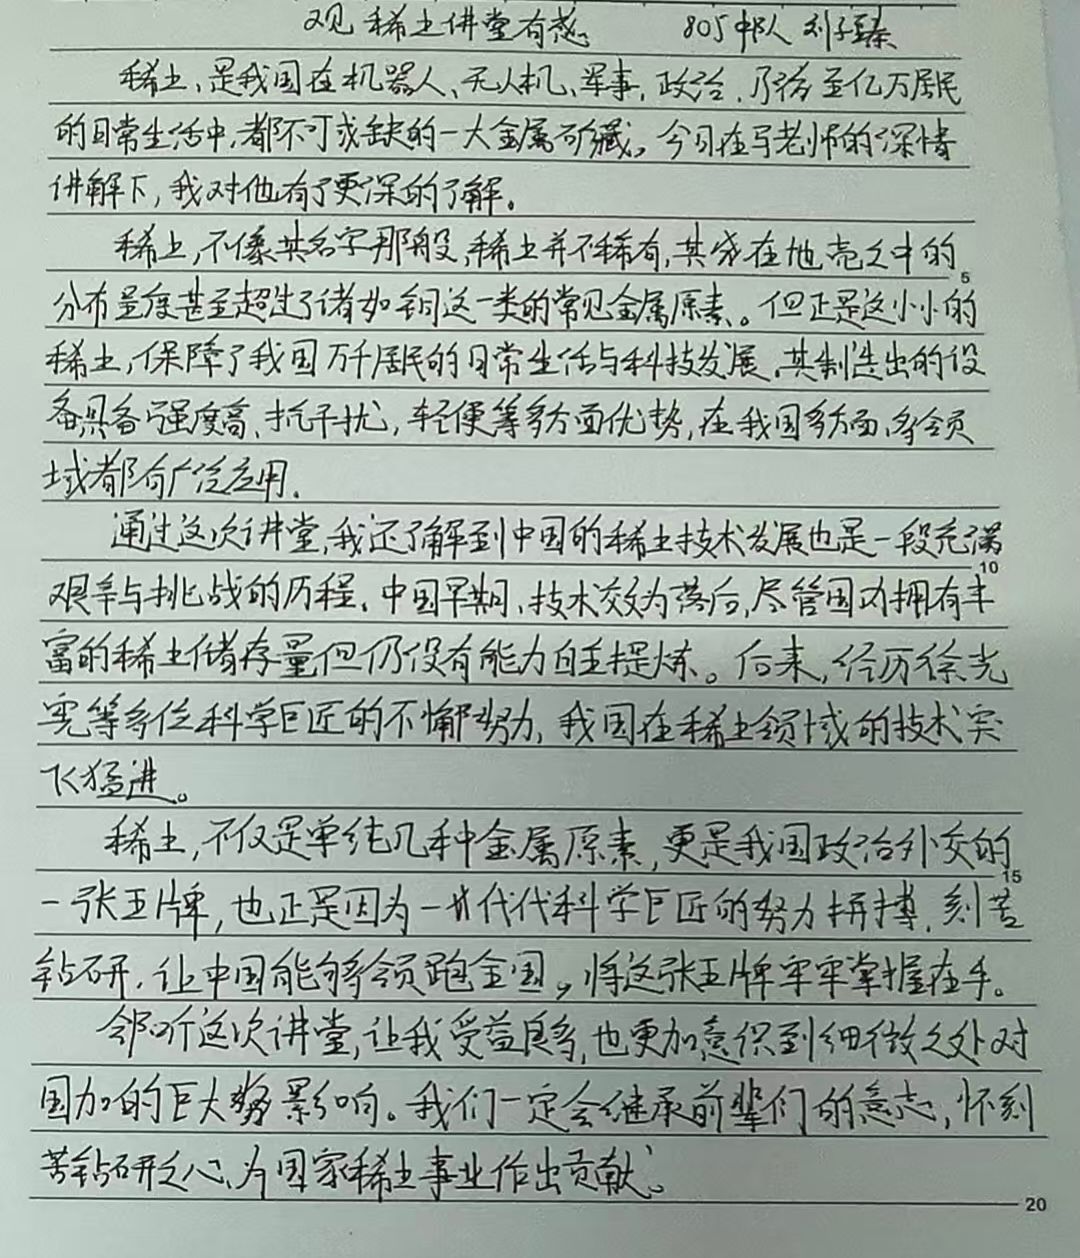 观稀土讲堂有感 805中队 刘子臻
稀土、是我国在机器人、无人机、军事、政治、乃至亿万居民
的日常生活中,都不可或缺的一大金属矿藏。今日在马老师的深情
讲解下,我对他有了更深的了解。
稀土,不像其名字那般,稀土并不稀有,其实在地壳之中的
分布量度甚至超过了诸如铜这一类的常见金属原素。但正是这小小的
稀土,保障了我国万千居民的日常生活与科技发展,其制造出的设
备具备强度高、抗干扰,轻便等多方面优势,在我国多方面、多领
域都有广泛应用.
通过这次讲堂,我还了解到中国的稀土技术发展也是一段充满
艰辛与挑战的历程.中国早期,技术较为落后,尽管国内拥有丰
富的稀土储存量但仍没有能力自主提炼。后来,经历徐光
宪等多位科学巨匠的不懈努力,我国在稀土领域的技术突
飞猛进。
稀土,不仅是单纯几种金属原素,更是我国政治外交的
一张王牌,也正是因为一代代科学巨匠的努力拼搏,刻苦
钻研,让中国能够领跑全国,将这张王牌牢牢掌握在手。
聆听这次讲堂,让我受益良多,也更加意识到细微之处对
国加的巨大影响。我们一定会继承前辈们的意志,怀刻
苦钻研之心、为国家稀土事业作出贡献。
5
10
15
20